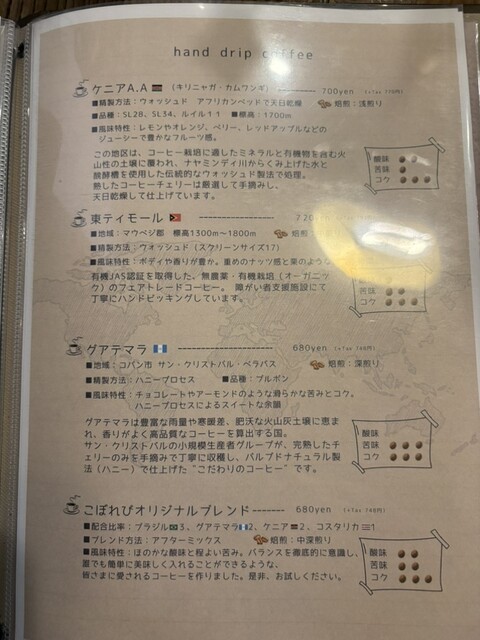 hand drip coffee
ケニアA.A (キリニャガ・カムワンギ) 700yen (+Tax 770円)
■精製方法：ウォッシュド アフリカンベッドで天日乾燥 焙煎：浅煎り
■品種：SL28、SL34、ルイル11 ■標高：1700m
■風味特性：レモンやオレンジ、ベリー、レッドアップルなどの
ジューシーで豊かなフルーツ感。
この地区は、コーヒー栽培に適したミネラルと有機物を含む火
山性の土壌に覆われ、ナヤミンディ川からくみ上げた水と
醗酵槽を使用した伝統的なウォッシュド製法で処理。
熟したコーヒーチェリーは厳選して手摘みし、
天日乾燥して仕上げています。
酸味
苦味
コク
東ティモール
■地域：マウベシ郡 標高1300m～1800m
■精製方法：ウォッシュド（スクリーンサイズ17）
■風味特性：ボディや香りが豊か。重めのナッツ感と栗のような
有機JAS認証を取得した、無農薬・有機栽培（オーガニッ
ク）のフェアトレードコーヒー。障がい者支援施設にて
丁寧にハンドピッキングしています。
苦味
コク
グアテマラ 680yen (+Tax 748円)
■地域：コバン市 サン・クリストバル・ベラパス 焙煎：深煎り
■精製方法：ハニープロセス ■品種：ブルボン
■風味特性：チョコレートやアーモンドのような滑らかな苦みとコク。
ハニープロセスによるスイートな余韻
グアテマラは豊富な雨量や寒暖差、肥沃な火山灰土壌に恵ま
れ、香りがよく高品質なコーヒーを算出する国。
サン・クリストバルの小規模生産者グループが、完熟したチ
ェリーのみを手摘みで丁寧に収穫し、パルプドナチュラル製
法（ハニー）で仕上げた"こだわりのコーヒー"です。
酸味
苦味
コク
こぼれびオリジナルブレンド 680yen (+Tax 748円)
■配合比率：ブラジル3、グアテマラ2、ケニア2、コスタリカ1
■ブレンド方法：アフターミックス 焙煎：中深煎り
■風味特性：ほのかな酸味と程よい苦み。バランスを徹底的に意識し、
誰でも簡単に美味しく入れることができるような、
皆さまに愛されるコーヒーを作りました。是非、お試しください。
酸味
苦味
コク